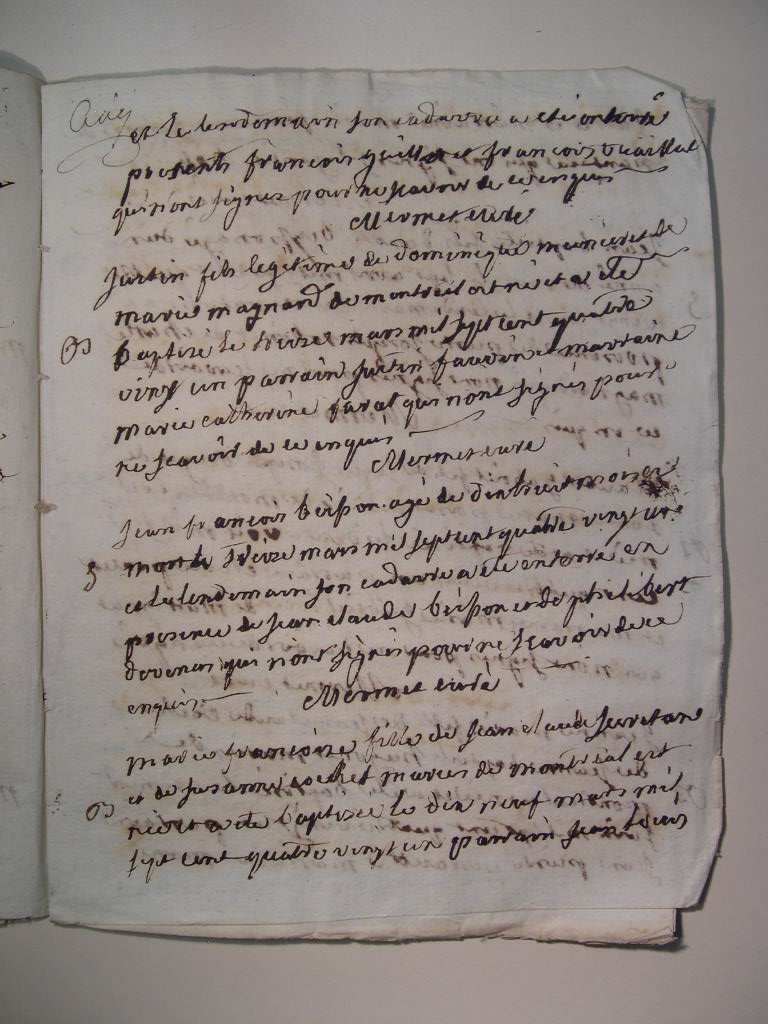 et le lendemain son cadavre a eté enterré
presents francois guillot et francois vuaillat
qui n'ont signez pour ne scavoir de ce enquis
Mermet curé
Justin fils legitime de dominique meunier et de
marie magnard de montreal est né et a eté
B
baptisé le treize mars mil sept cent quatre
vingt un parrain Justin fauvin et marraine
marie catherine qui n'ont signés pour
ne scavoir de ce enquis
Mermet curé
Jean francois berson agé de dixhuit mois est
mort le treize mars mil sept cent quatre vingt un
S
et le lendemain son cadavre a eté enterré en
presence de Jean claude berson et de philibert
qui n'ont signés pour ne scavoir de ce
enquis
Mermet curé
marie francoise fille de Jean claude secretan
et de susanne mariés de montreal est
B
née et a eté baptisée le dix neuf mars mil
sept cent quatre vingt un parrain Jean louis